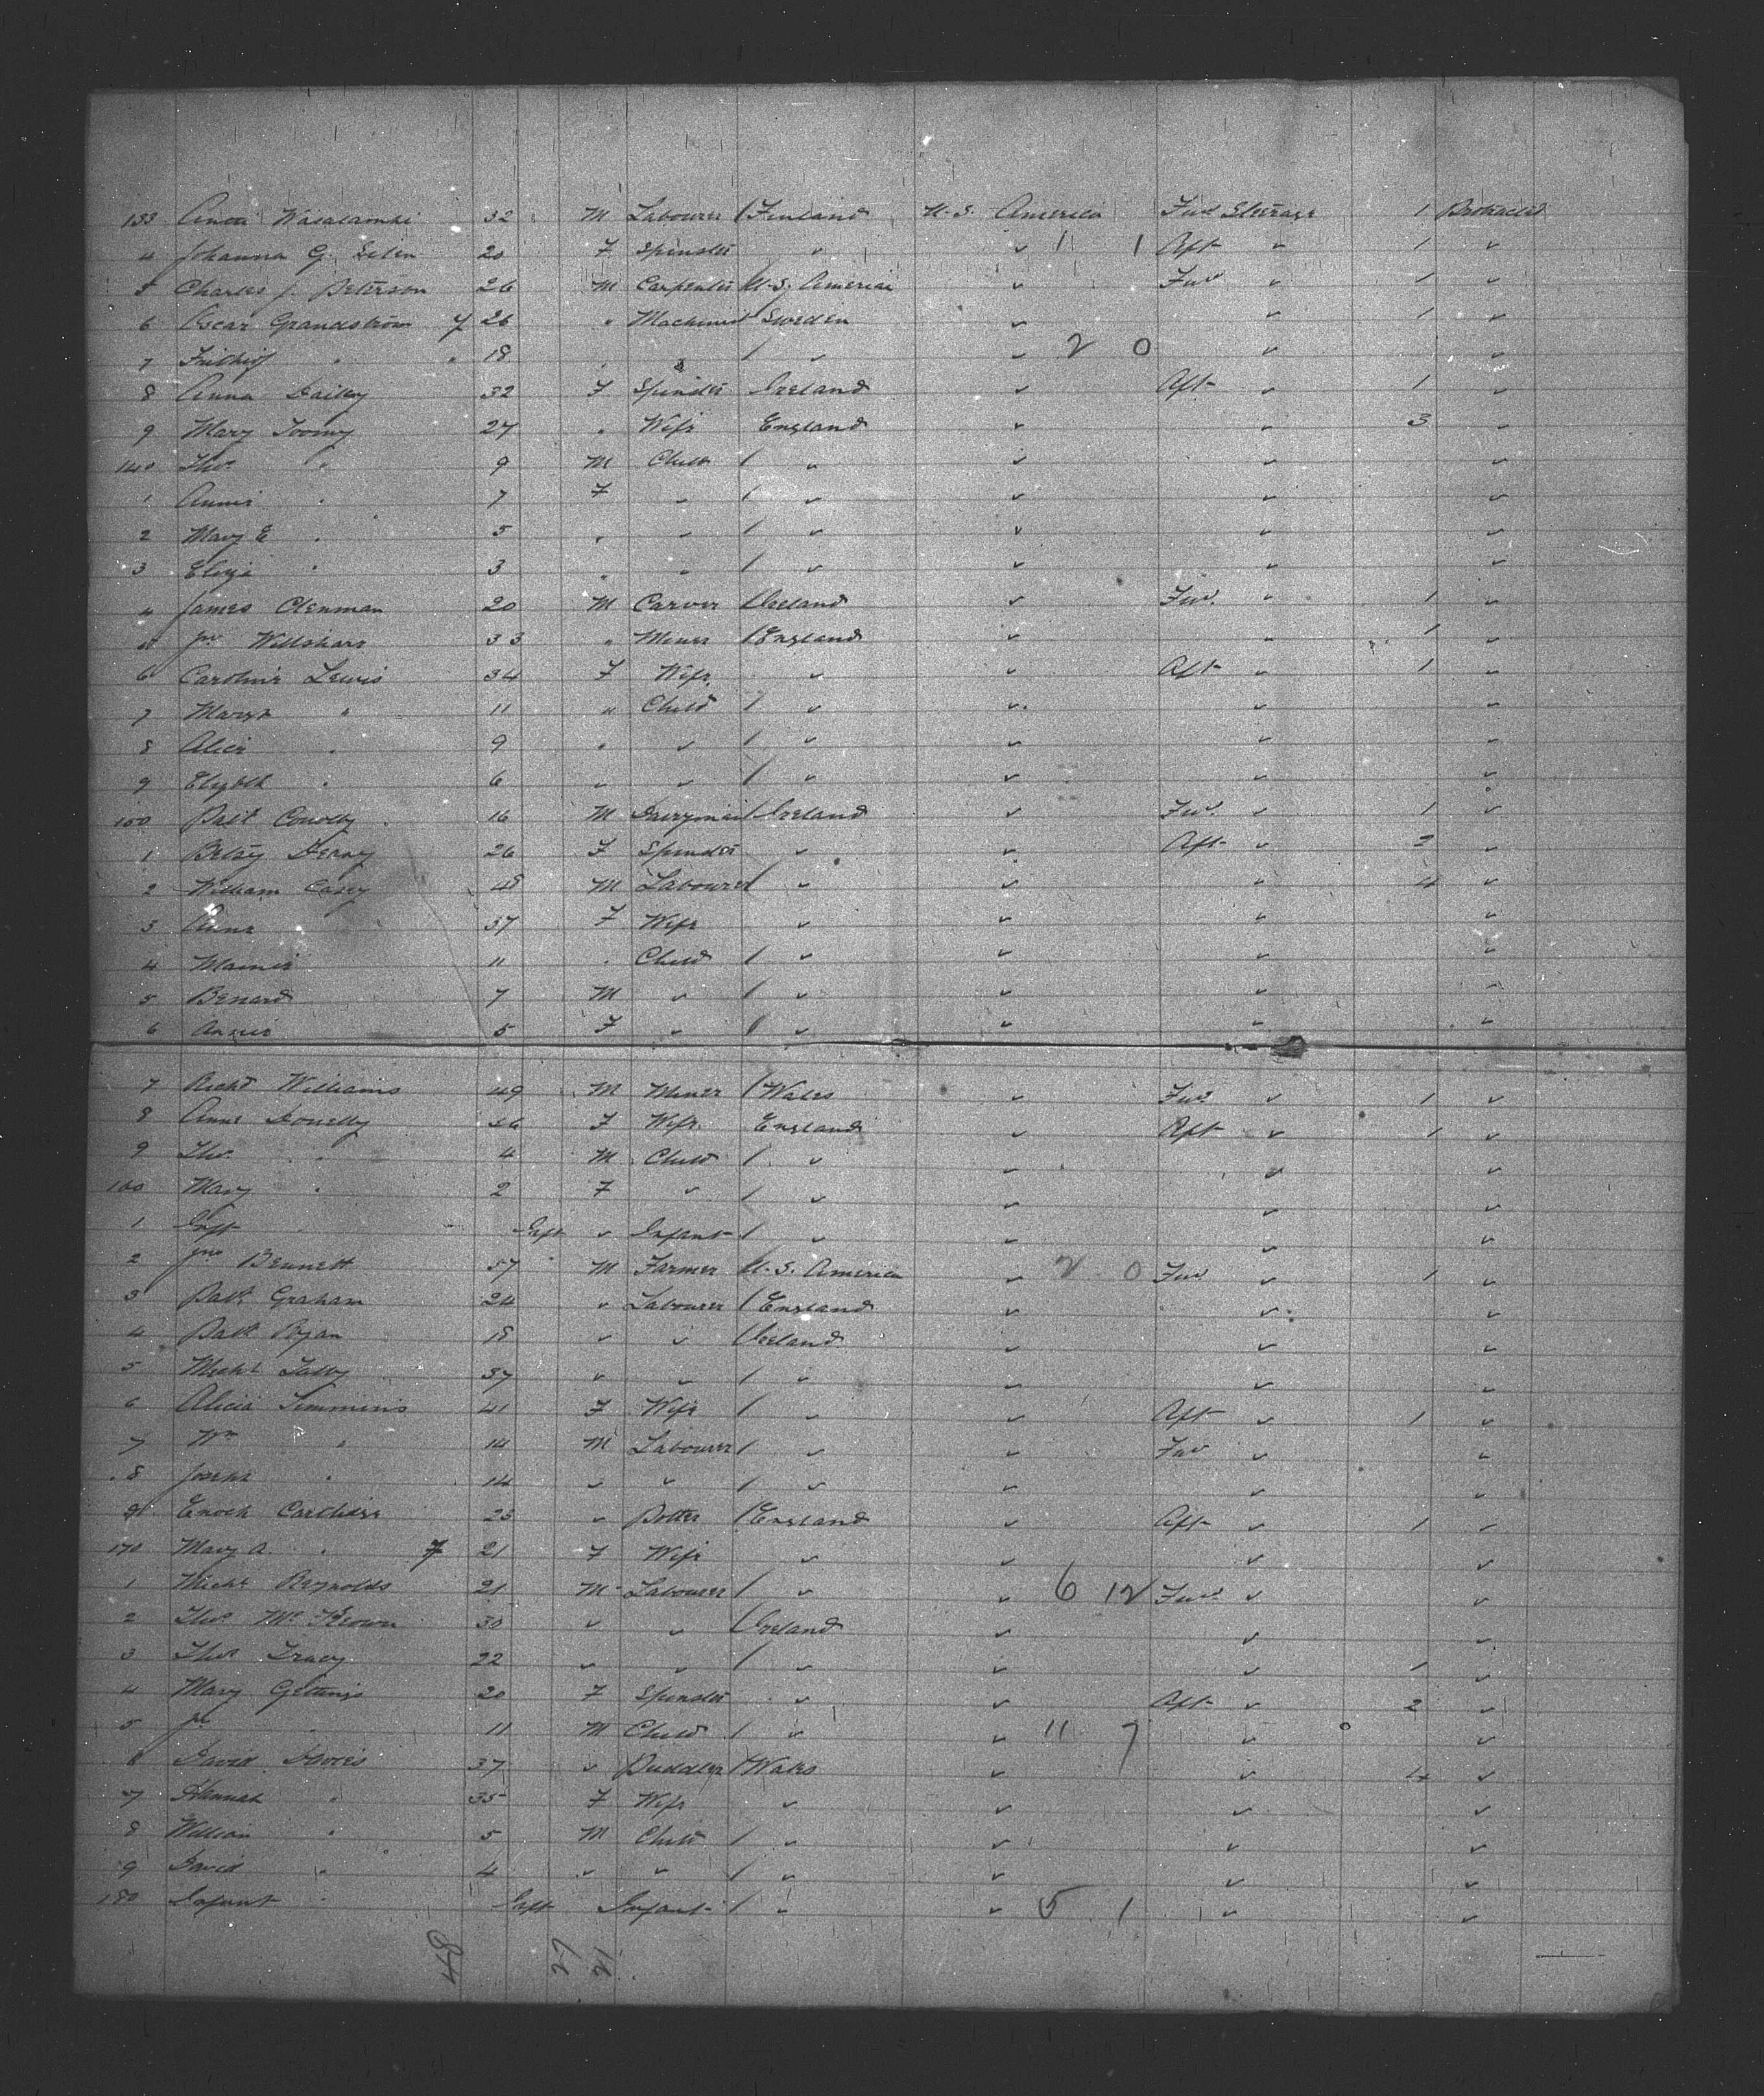 133 Wasalamki 32 M Labourer / Finland U.S. America Fwd Steerage 1 Protracted
4 Johanna G. Selen 20 F Spinster " " 1 1 Aft " 1 "
5 Charles J. Peterson 26 M Carpenter U.S. America " Fwd " 1 "
6 Oscar Grandstrom 26 " Machinist Sweden " " 1 "
7 Frithiof " " 18 " " / " " 2 0 " "
8 Anna Dailey 32 F Spinster Ireland " Aft " 1 "
9 Mary Toomy 27 " Wife England " " 3 "
140 Thos " 9 M Child / " " " "
1 Annie " 7 F " / " " " "
2 Mary E " 5 " " / " " " "
3 Eliza " 3 " " / " " " "
4 James Clenman 20 M Carver / Ireland " Fwd. " 1 "
5 Jno Willshare 33 " Miner / England " " 1 "
6 Caroline Lewis 34 F Wife " " Aft " 1 "
7 " 11 " Child / " " " "
8 Alice " 9 " " / " " " "
9 Elizbth " 6 " " / " " " "
150 Patk Conolly 16 M Dairyman / Ireland " Fwd. " 1 "
1 Betsy 26 F Spinster " " Aft " 2 "
2 William Casey 48 M Labourer / " " " 4 "
3 Anne 37 F Wife " " " "
4 Mamie 11 " Child / " " " "
5 Benard 7 M " / " " " "
6 Annie 5 F " / " " " "
7 Richd Williams 49 M Miner / Wales " Fwd " 1 "
8 Anne Donelly 26 F Wife England " Aft " 1 "
9 Thos " 4 M Child / " " " "
160 Mary " 2 F " / " " " "
1 Inft " Inft " Infant / " " " "
2 Jno Bennett 57 M Farmer U.S. America " 2 0 Fwd " 1 "
3 Patk Graham 24 " Labourer / England " " "
4 Patk Ryan 18 " " / Ireland " " "
5 Michl Lally 37 " " / " " " "
6 Alicia Timmins 41 F Wife / " " Aft " 1 "
7 Wm " 14 M Labourer / " " Fwd " "
8 Joseph " 14 " " / " " " "
9 Enoch 23 " Potter / England " Aft " 1 "
170 Mary A. " 21 F Wife " " " "
1 Michl Reynolds 21 M Labourer / " " 6 12 Fwd " "
2 Thos McKeown 30 " " / Ireland " " "
3 Thos Tracy 22 " " / " " " 1 "
4 Mary Gettings 20 F Spinster " " Aft " 2 "
5 " 11 M Child / " " 11 7 " "
6 David Davies 37 " Puddler / Wales " " 4 "
7 Hannah " 35 F Wife " " " "
8 William " 5 M Child / " " " "
9 David " 4 " " / " " " "
180 Infant " Inft Infant / " " 5 1 " "